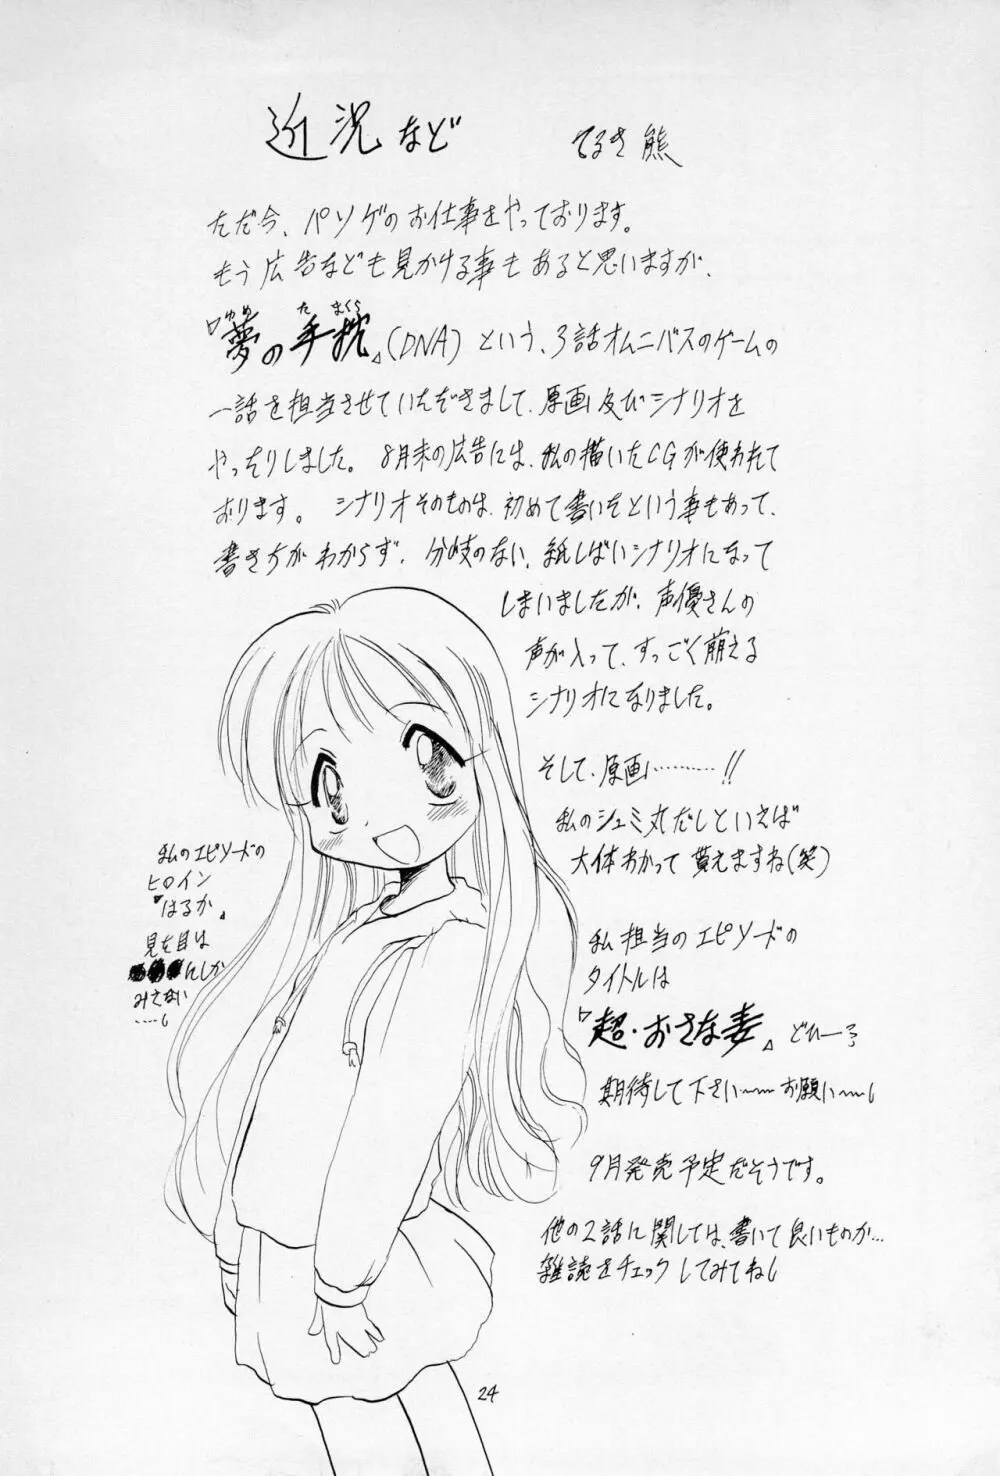 近況など
てるき熊
ただ今、パソゲのお仕事をやっております。
もう広告なども見かける事もあると思いますが、
『夢の手枕』(DNA)という、3話オムニバスのゲームの
ゆめ た まくら
一話を担当させていただきまして、原画及びシナリオを
やったりしました。8月末の広告には、私の描いたCGが使われて
おります。シナリオそのものは、初めて書いたという事もあって、
書き方がわからず、分岐のない、紙しばいシナリオになって
しまいましたが、声優さんの
声が入って、すっごく萌える
シナリオになりました。
そして、原画………!!
私のシュミ丸だしといえば
大体わかって貰えますね(笑)
私担当のエピソードの
タイトルは
『超・おさな妻』どひーっ
期待して下さい〜〜お願い〜〜
9月発売予定だそうです。
他の2話に関しては、書いて良いものか…
雑誌をチェックしてみてね
私のエピソードの
ヒロイン
『はるか』
見た目は
にしか
みえない
……
24